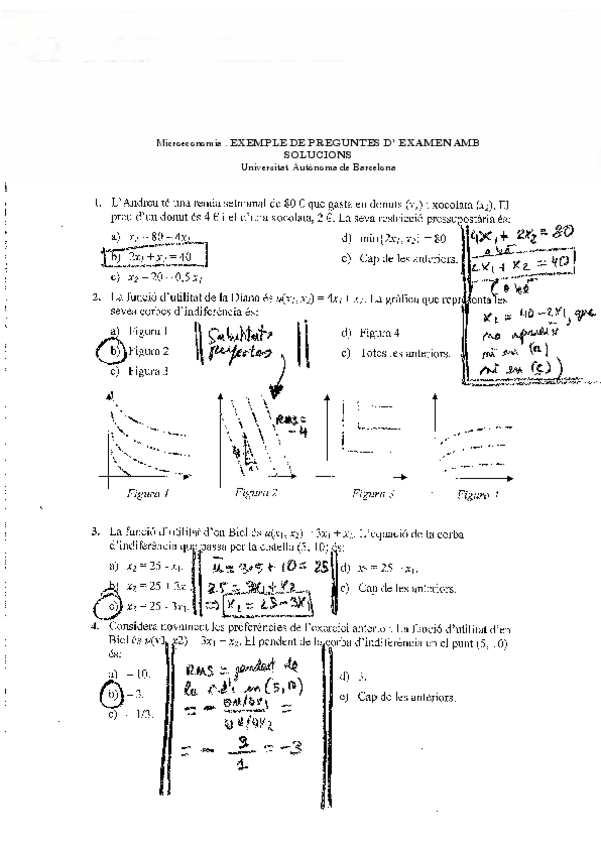 Microeconomia . EXEMPLE DE PREGUNTES D' EXAMEN AMB
SOLUCIONS
Universitat Autònoma de Barcelona
1. L'Andreu té una renda setmanal de 80 € que gasta en donuts (x₁) i xocolata (x₂). El
preu d'un donut és 4 € i el d'una xocolata, 2 €. La seva restricció pressupostària és:
a) x₂ = 80 – 4x₁
b) 2x₁ + x₂ = 40
c) x₂ = 20 – 0,5 x₁
d) min{2x₁, x₂} = 80
e) Cap de les anteriors.
4x₁ + 2x₂ = 80
o bé
2x₁ + x₂ = 40
(o bé
x₂ = 40 – 2x₁, que
no apareix
ni en (a)
ni en (c))
2. La funció d'utilitat de la Diana és u(x₁, x₂) = 4x₁ + x₂. La gràfica que representa les
seves corbes d'indiferència és:
a) Figura 1
b) Figura 2
c) Figura 3
d) Figura 4
e) Totes les anteriors.
perfectos
RMS =
– 4
Figura 1
Figura 2
Figura 3
Figura 4
3. La funció d'utilitat d'en Biel és u(x₁, x₂) = 3x₁ + x₂. L'equació de la corba
d'indiferència que passa per la cistella (5, 10) és:
a) x₂ = 25 - x₁.
b) x₂ = 25 + 3x
c) x₂ = 25 - 3x₁.
d) e) Cap de les anteriors.
u = 3·5 + 10 = 25
25 = 3x₁ + x₂
⇒ x₂ = 25 – 3x₁
4. Considera novament les preferències de l'exercici anterior. La funció d'utilitat d'en
Biel és u(x1, x2) = 3x₁ + x₂. El pendent de la corba d'indiferència en el punt (5, 10)
és:
a) – 10.
b) – 3.
c) - 1/3.
d) 3.
e) Cap de les anteriors.
RMS = pendent de
la c. d'i en (5,10)
= – ∂u/∂x₁ =
∂u/∂x₂
= – 3 = –3
1